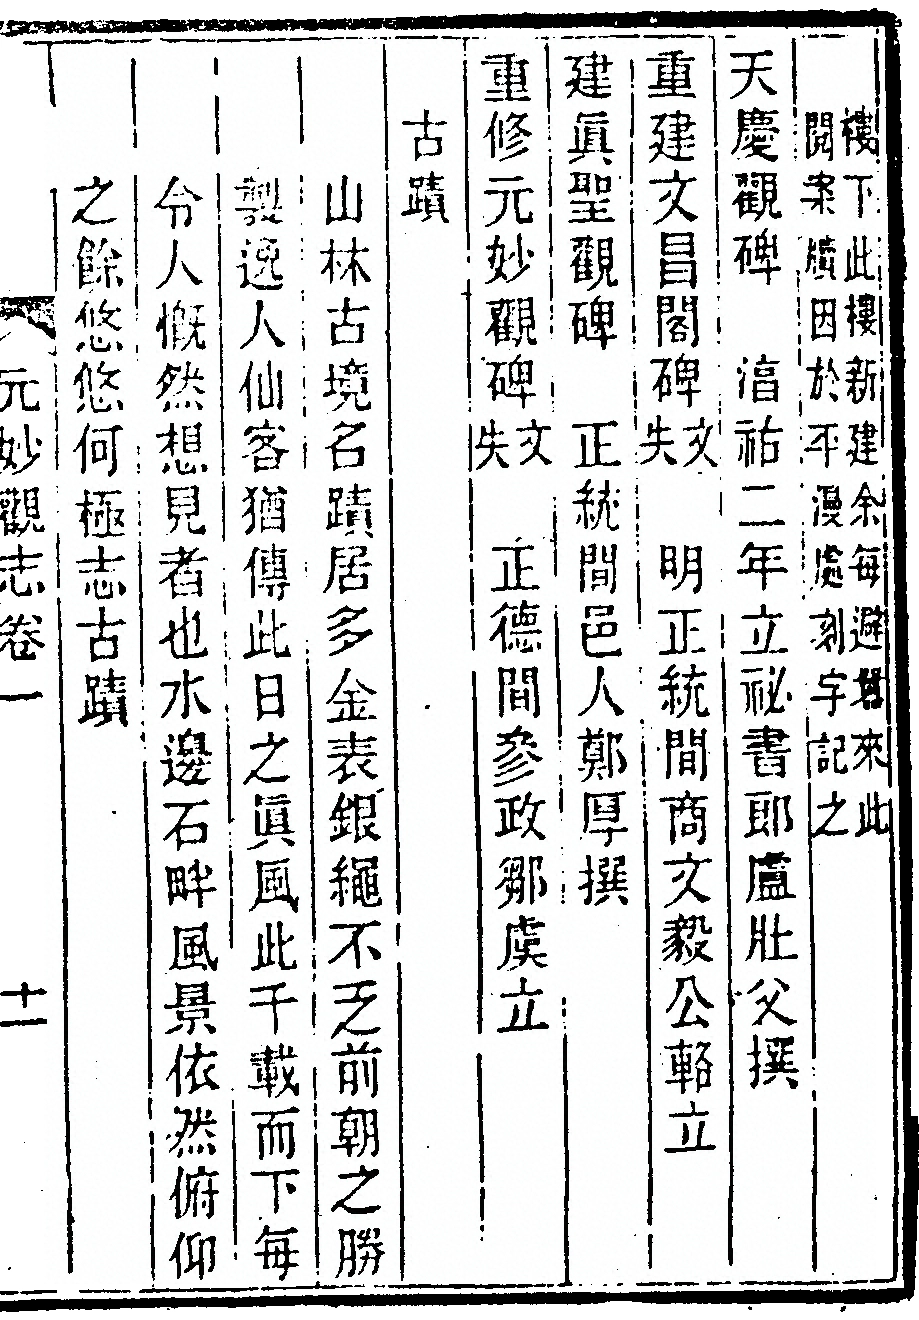 樓下此樓新建余每避囂來此
閱案牘因於平漫處刻字記之
天慶觀碑　湻祐二年立祕書郎盧壯父撰
重建文昌閣碑文失　明正統間商文毅公輅立
建眞聖觀碑　正統間邑人鄭厚撰
重修元妙觀碑文失　正德間參政鄒虞立
古蹟
山林古境名蹟居多金表銀繩不乏前朝之勝
製逸人仙客猶傳此日之眞風此千載而下每
令人慨然想見者也水邊石畔風景依然俯仰
之餘悠悠何極志古蹟
元妙觀志卷一
十一